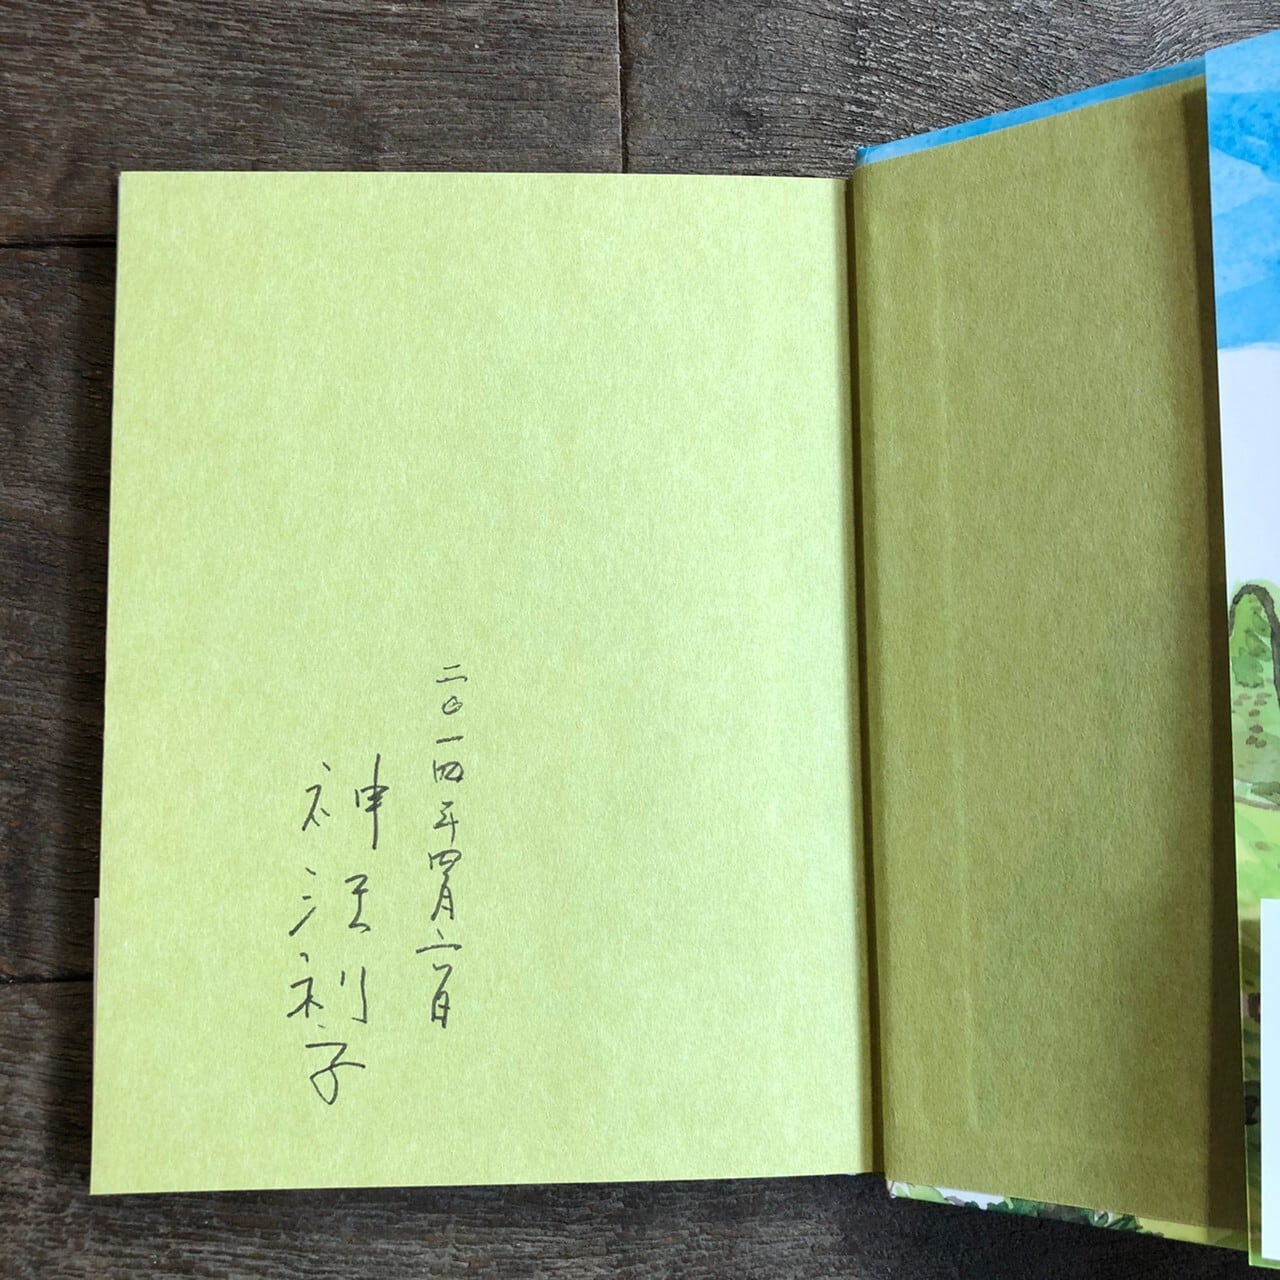 二〇一四年四月六日
神沢利子